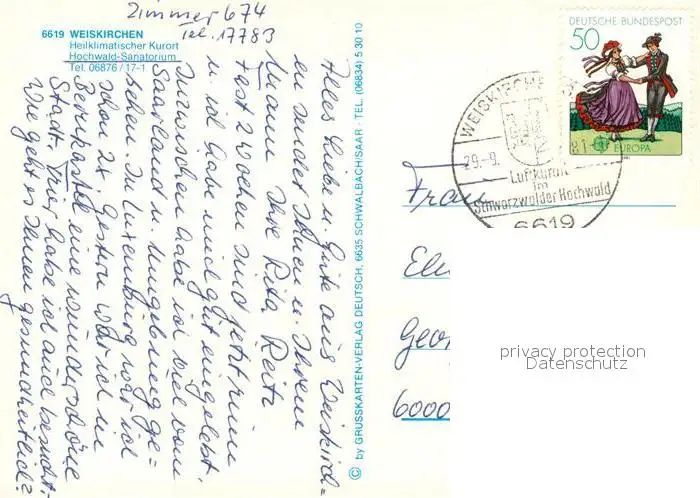 Zimmer 674
Tel. 17783
6619 WEISKIRCHEN
Heilklimatischer Kurort
Hochwald-Sanatorium
Tel. 06876 / 17-1
Alles Liebe u. Gute aus Weiskirch=
en sendet Ihnen u. Ihrem
Mann Ihre Rita Reitz
Fast 2 Wochen sind jetzt rum
u. ich habe mich gut eingelebt.
Inzwischen habe ich viel vom
Saarland u. Umgebung ge=
sehen. In Luxemburg war ich
schon 2x. Gestern war ich in
Bernkastel eine wunderschöne
Stadt. Trier habe ich auch besucht.
Wie geht es Ihnen gesundheitlich?
© by GRUSSKARTEN-VERLAG DEUTSCH, 6635 SCHWALBACH/SAAR · TEL. (06834) 5 30 10
DEUTSCHE BUNDESPOST
50
EUROPA
WEISKIRCHE
29.-9.
81
Luftkurort
im
Schwarzwälder Hochwald
6619
Frau
Geor
6000
privacy protection
Datenschutz